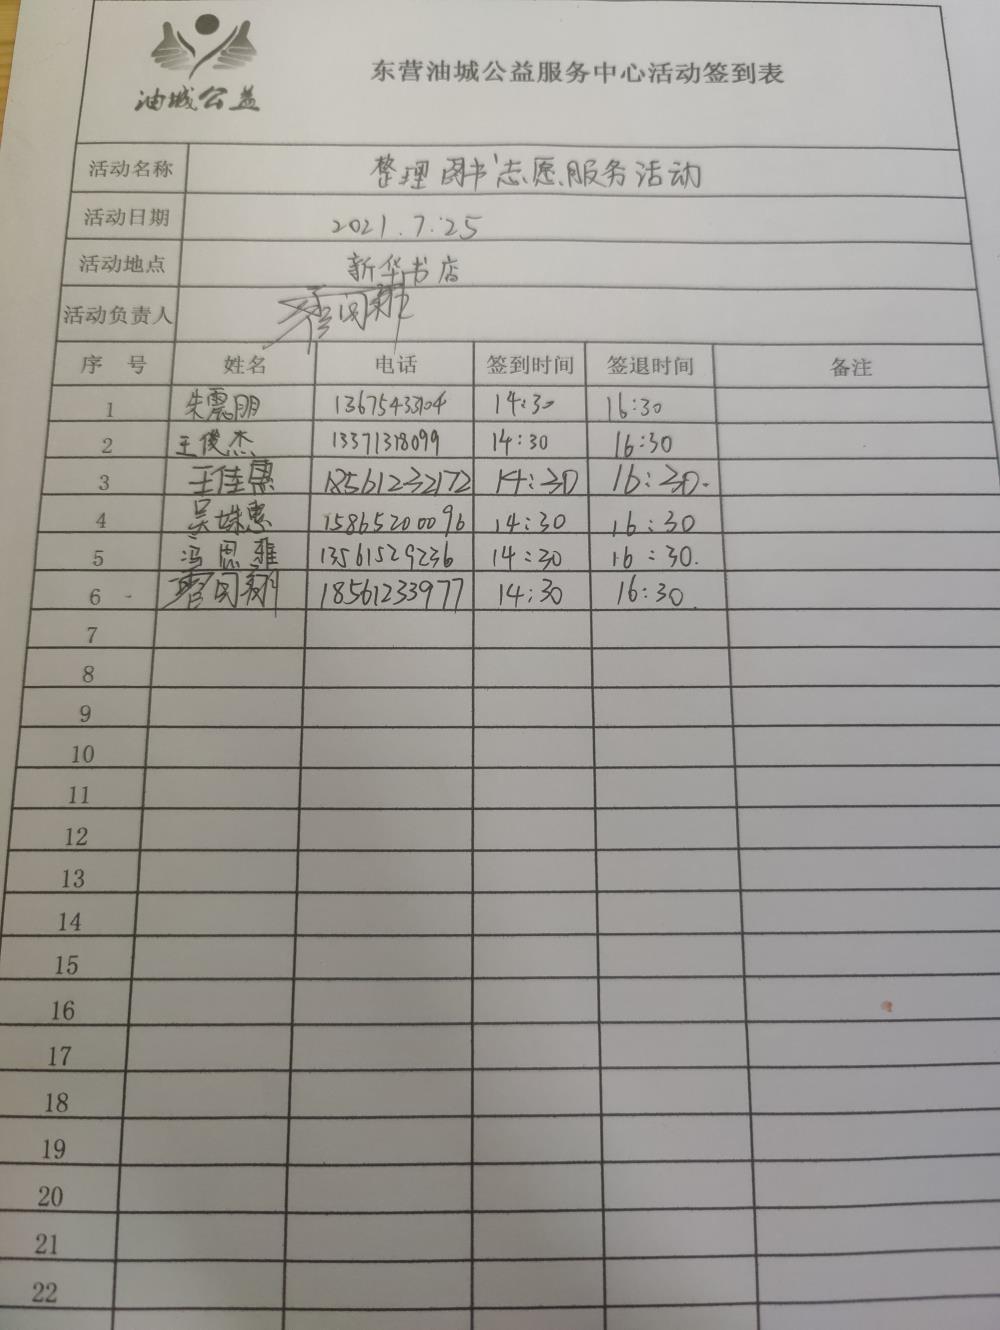 油城公益
东营油城公益服务中心活动签到表
活动名称 整理图书志愿服务活动
活动日期 2021.7.25
活动地点 新华书店
活动负责人
序 号 姓名 电话 签到时间 签退时间 备注
1 朱震朋 14:30 16:30
2 王俊杰 13371318099 14:30 16:30
3 王佳惠 18561232172 14:30 16:30.
4 吴姝惠 15865200096 14:30 16:30
5 冯思雅 13561529236 14:30 16:30.
6 18561233977 14:30 16:30
7
8
9
10
11
12
13
14
15
16
17
18
19
20
21
22